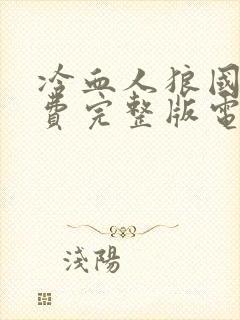 冷血人狼國
費完整版電
淺陽